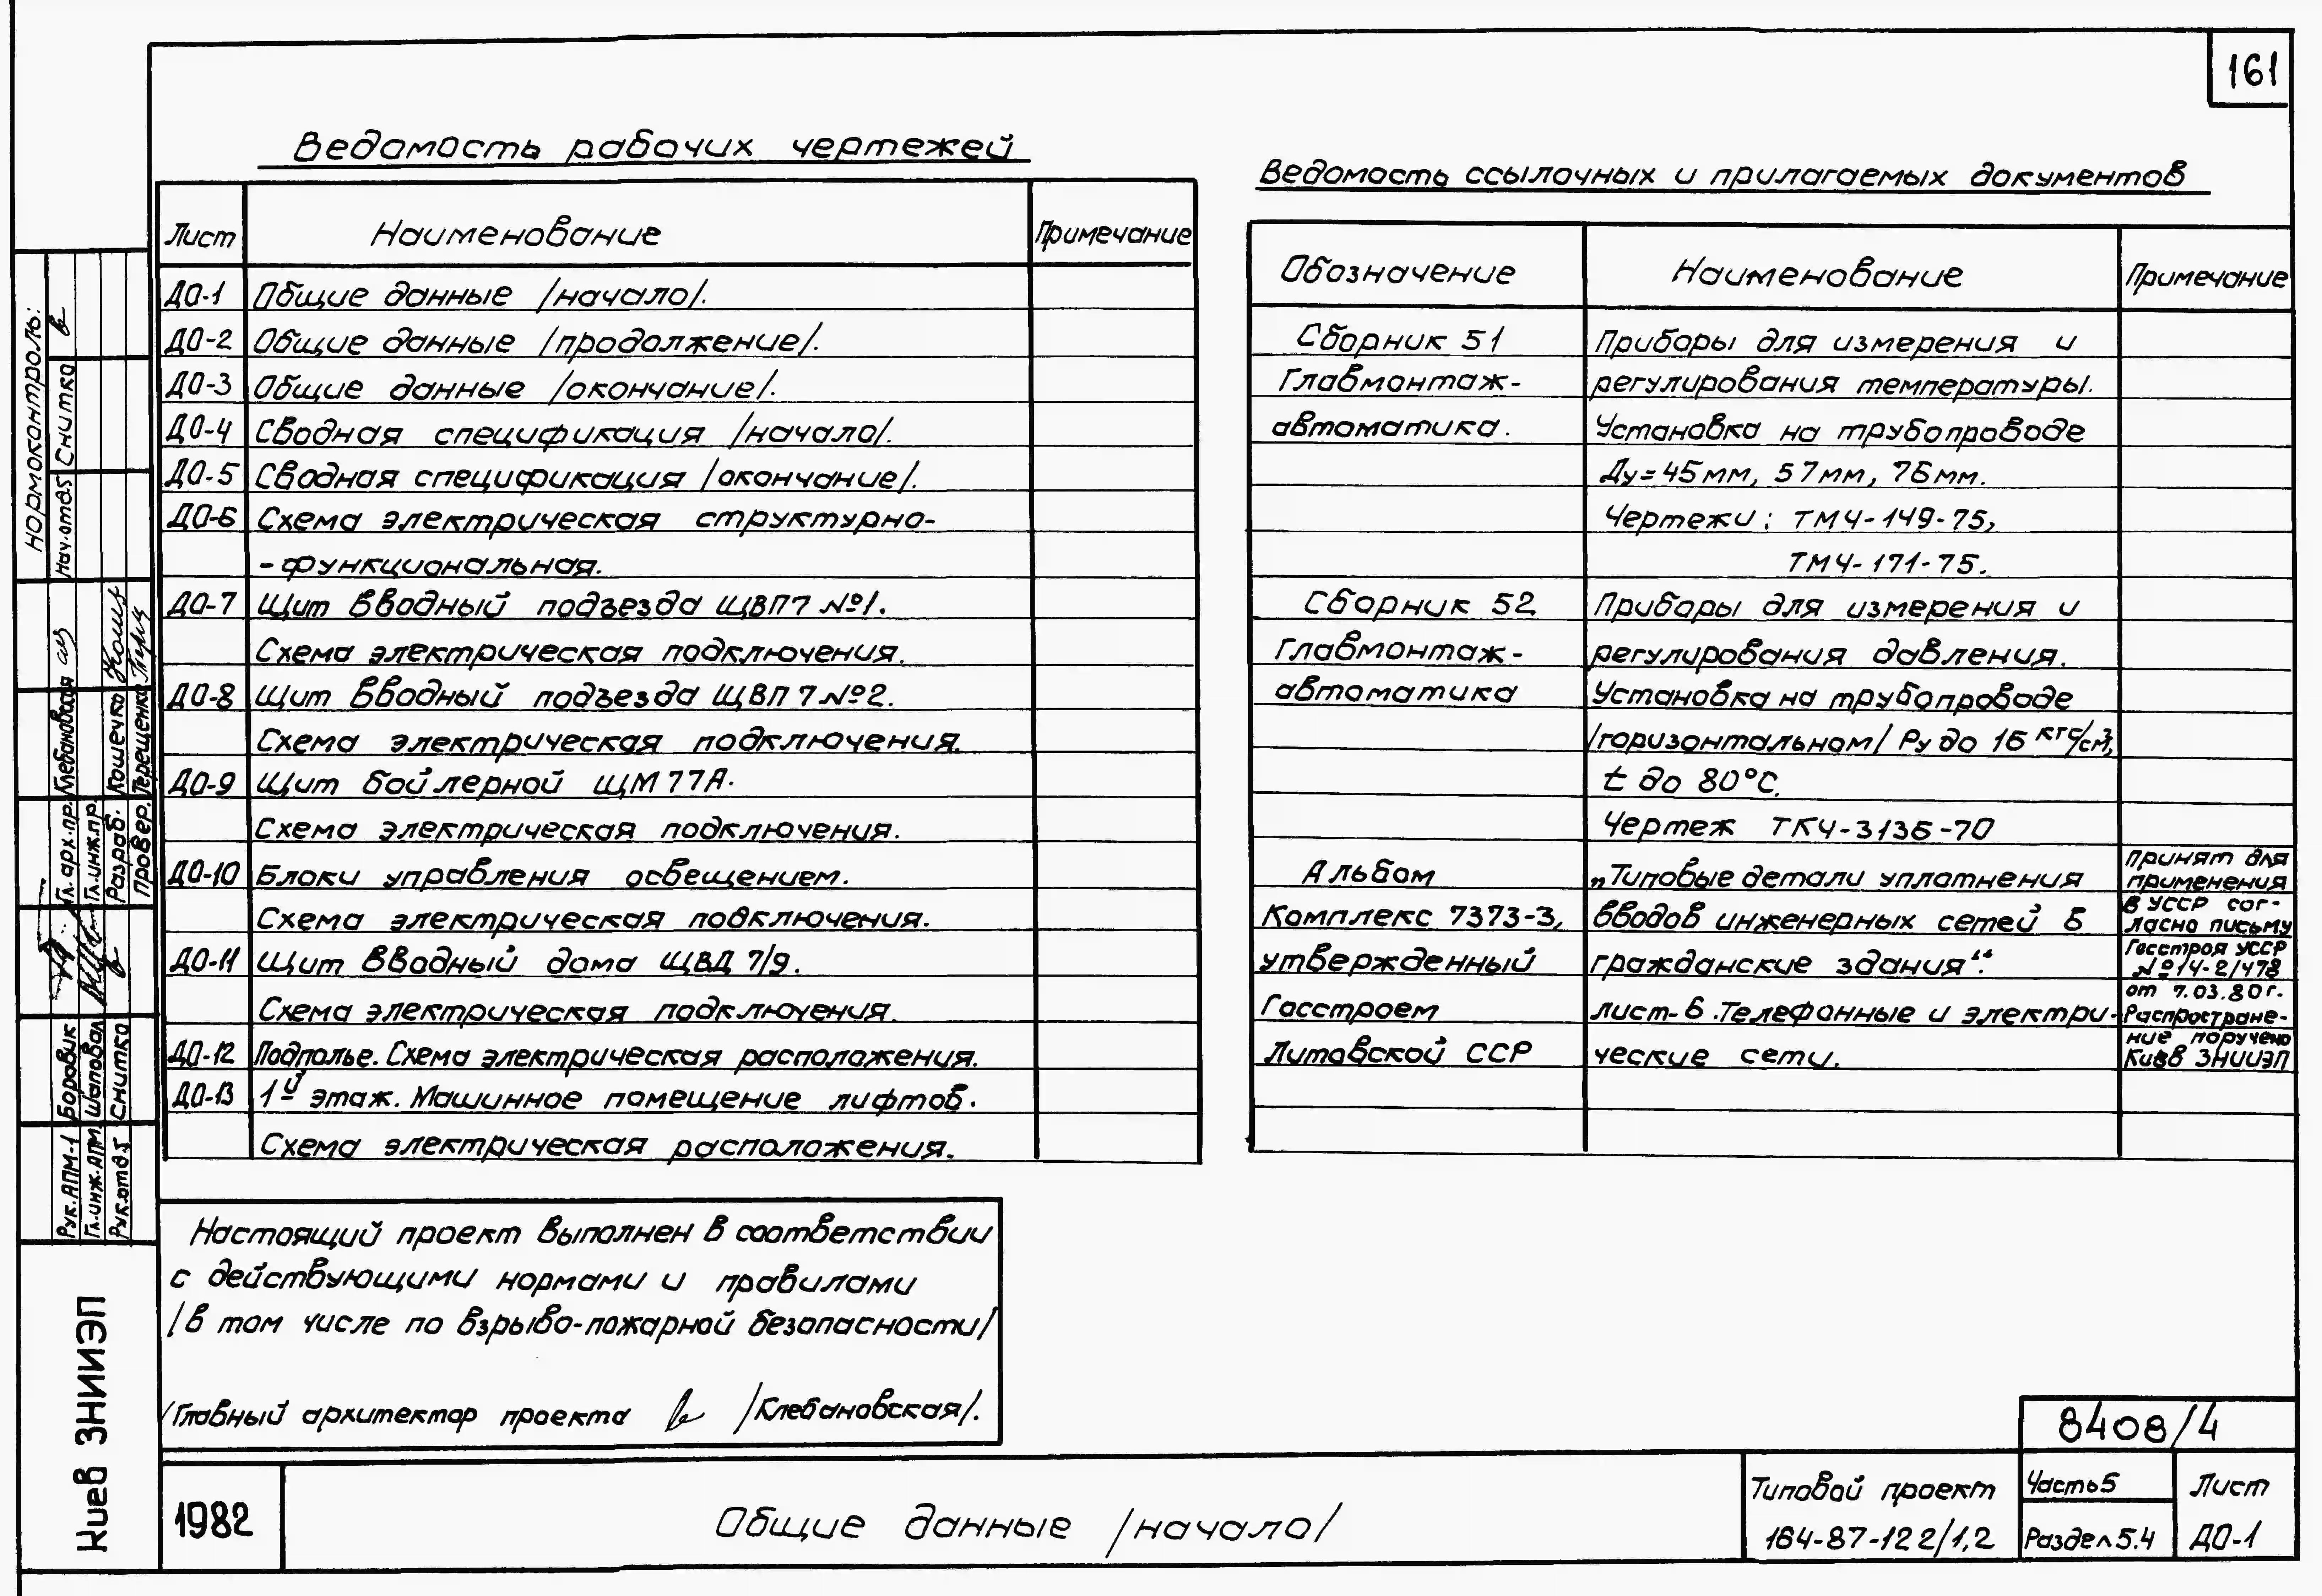 161
Ведомость рабочих чертежей
Лист Наименование Примечание
ДО-1 Общие данные /начало/.
ДО-2 Общие данные /продолжение/.
ДО-3 Общие данные /окончание/.
ДО-4 Сводная спецификация /начало/.
ДО-5 Сводная спецификация /окончание/.
ДО-6 Схема электрическая структурно-
-функциональная.
ДО-7 Щит вводный подъезда ЩВП7 №1.
Схема электрическая подключения.
ДО-8 Щит вводный подъезда ЩВП 7 №2.
Схема электрическая подключения.
ДО-9 Щит бойлерной ЩМ77А.
Схема электрическая подключения.
ДО-10 Блоки управления освещением.
Схема электрическая подключения.
ДО-11 Щит вводный дома ЩВД 7/9.
Схема электрическая подключения.
ДО-12 Подполье. Схема электрическая расположения.
ДО-13 1й этаж. Машинное помещение лифтов.
Схема электрическая расположения.
Ведомость ссылочных и прилагаемых документов
Обозначение Наименование Примечание
Сборник 51 Приборы для измерения и
Главмонтаж- регулирования температуры.
автоматика. Установка на трубопроводе
Ду=45мм, 57мм, 76мм.
Чертежи: ТМЧ-149-75,
ТМЧ-171-75.
Сборник 52 Приборы для измерения и
Главмонтаж- регулирования давления.
автоматика Установка на трубопроводе
/горизонтальном/ Ру до 16 кгс/см²,
t до 80°С.
Чертеж ТКЧ-3136-70
Альбом „Типовые детали уплотнения
Комплекс 7373-3, вводов инженерных сетей в
утвержденный гражданские здания“.
Госстроем лист-6. Телефонные и электри-
Литовской ССР ческие сети.
Принят для
применения
в УССР сог-
ласно письму
Госстроя УССР
№14-2/478
от 7.03.80г.
Распростране-
ние поручено
Киев ЗНИИЭП
Настоящий проект выполнен в соответствии
с действующими нормами и правилами
/в том числе по взрыво-пожарной безопасности/
/Главный архитектор проекта /Клебановская/.
нормоконтроль:
Нач.отд5 Снитко
Гл. арх.пр. Клебановская
Гл.инж.пр.
Разраб. Кошечко
Провер. Терещенко
Рук.АПМ-1 Боровик
Гл.инж.АПМ Шаповал
Рук.отд5 Снитко
Киев ЗНИИЭП
1982
Общие данные /начало/
8408/4
Типовой проект
164-87-122/1,2
Часть5
Раздел5.4
Лист
ДО-1